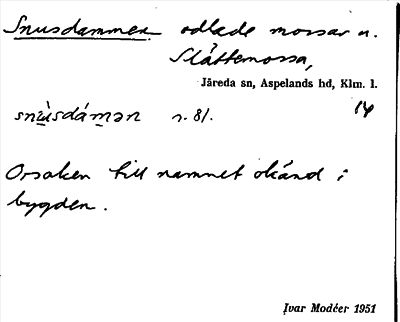 Snusdammen odlade mossar u.
Slåttemossa,
Järeda sn, Aspelands hd, Klm. l.
14
snùsdám̲ən s. 81.
Orsaken till namnet okänd i
bygden.
Ivar Modéer 1951